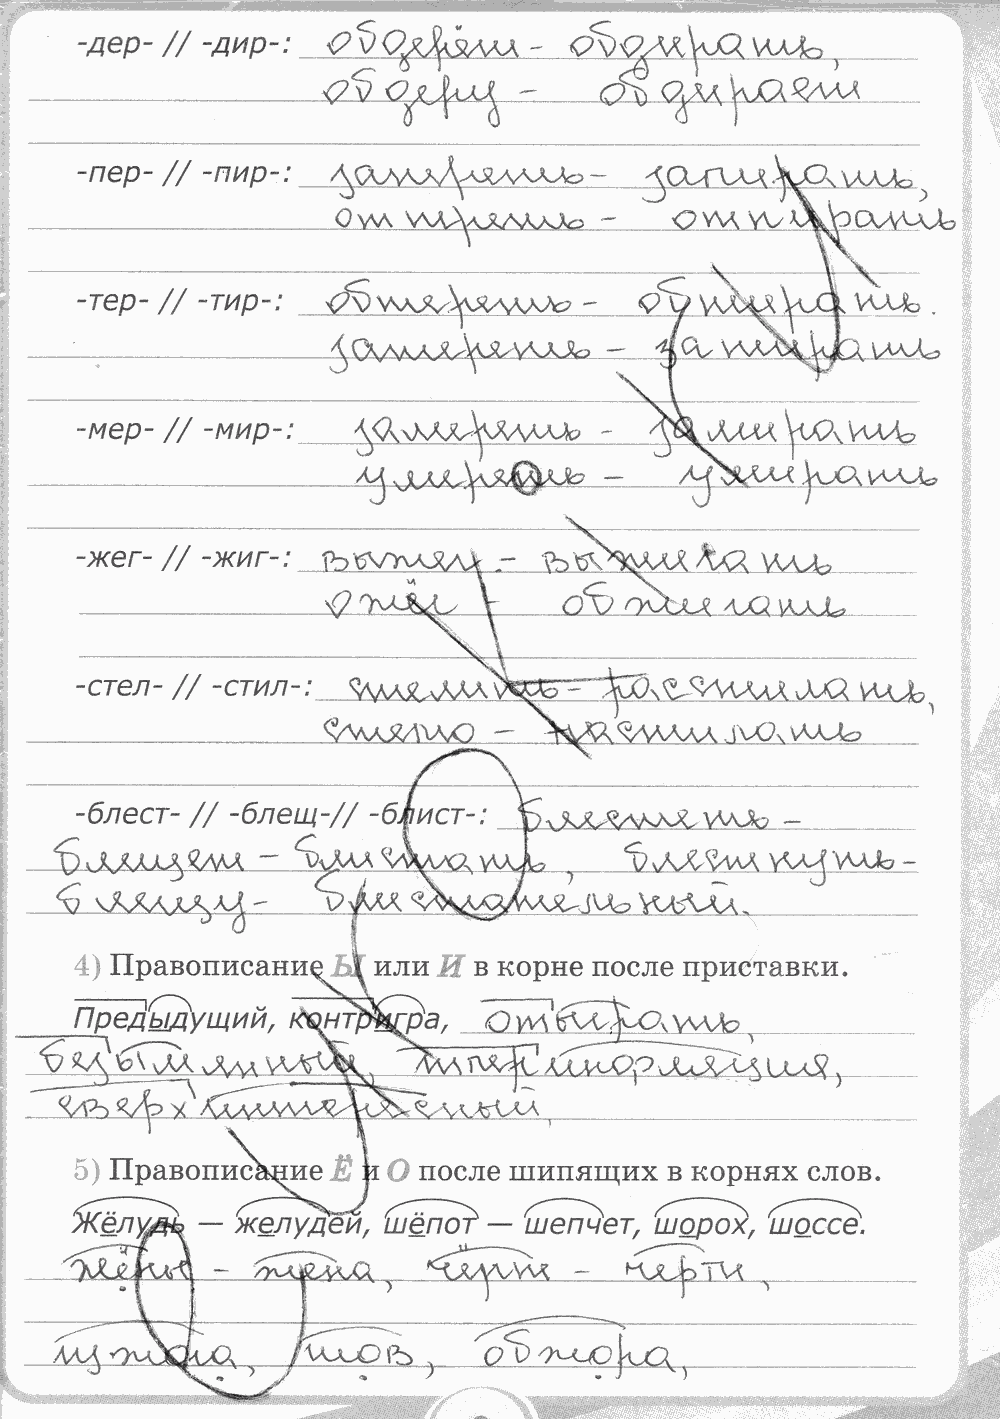 -дер- // -дир-: обдерёт - обдирать,
обдеру - обдирает
-пер- // -пир-: запереть - запирать,
отпереть - отпирать
-тер- // -тир-: обтереть - обтирать.
затереть - затирать
-мер- // -мир-: замереть - замирать
умереть - умирать
-жег- // -жиг-: выжег - выжигать
ожёг - обжигать
-стел- // -стил-: стелить - расстилать,
стелю - настилать
-блест- // -блещ-// -блист-: блестеть -
блещет - блистать, блеснуть -
блещу - блистательный.
4) Правописание Ы или И в корне после приставки.
Предыдущий, контригра, отыграть,
безымянный, гиперинфляция,
сверхинтересный,
5) Правописание Ё и О после шипящих в корнях слов.
Жёлудь — желудей, шёпот — шепчет, шорох, шоссе.
жёны - жена, черти,
изжога, шов, обжора,